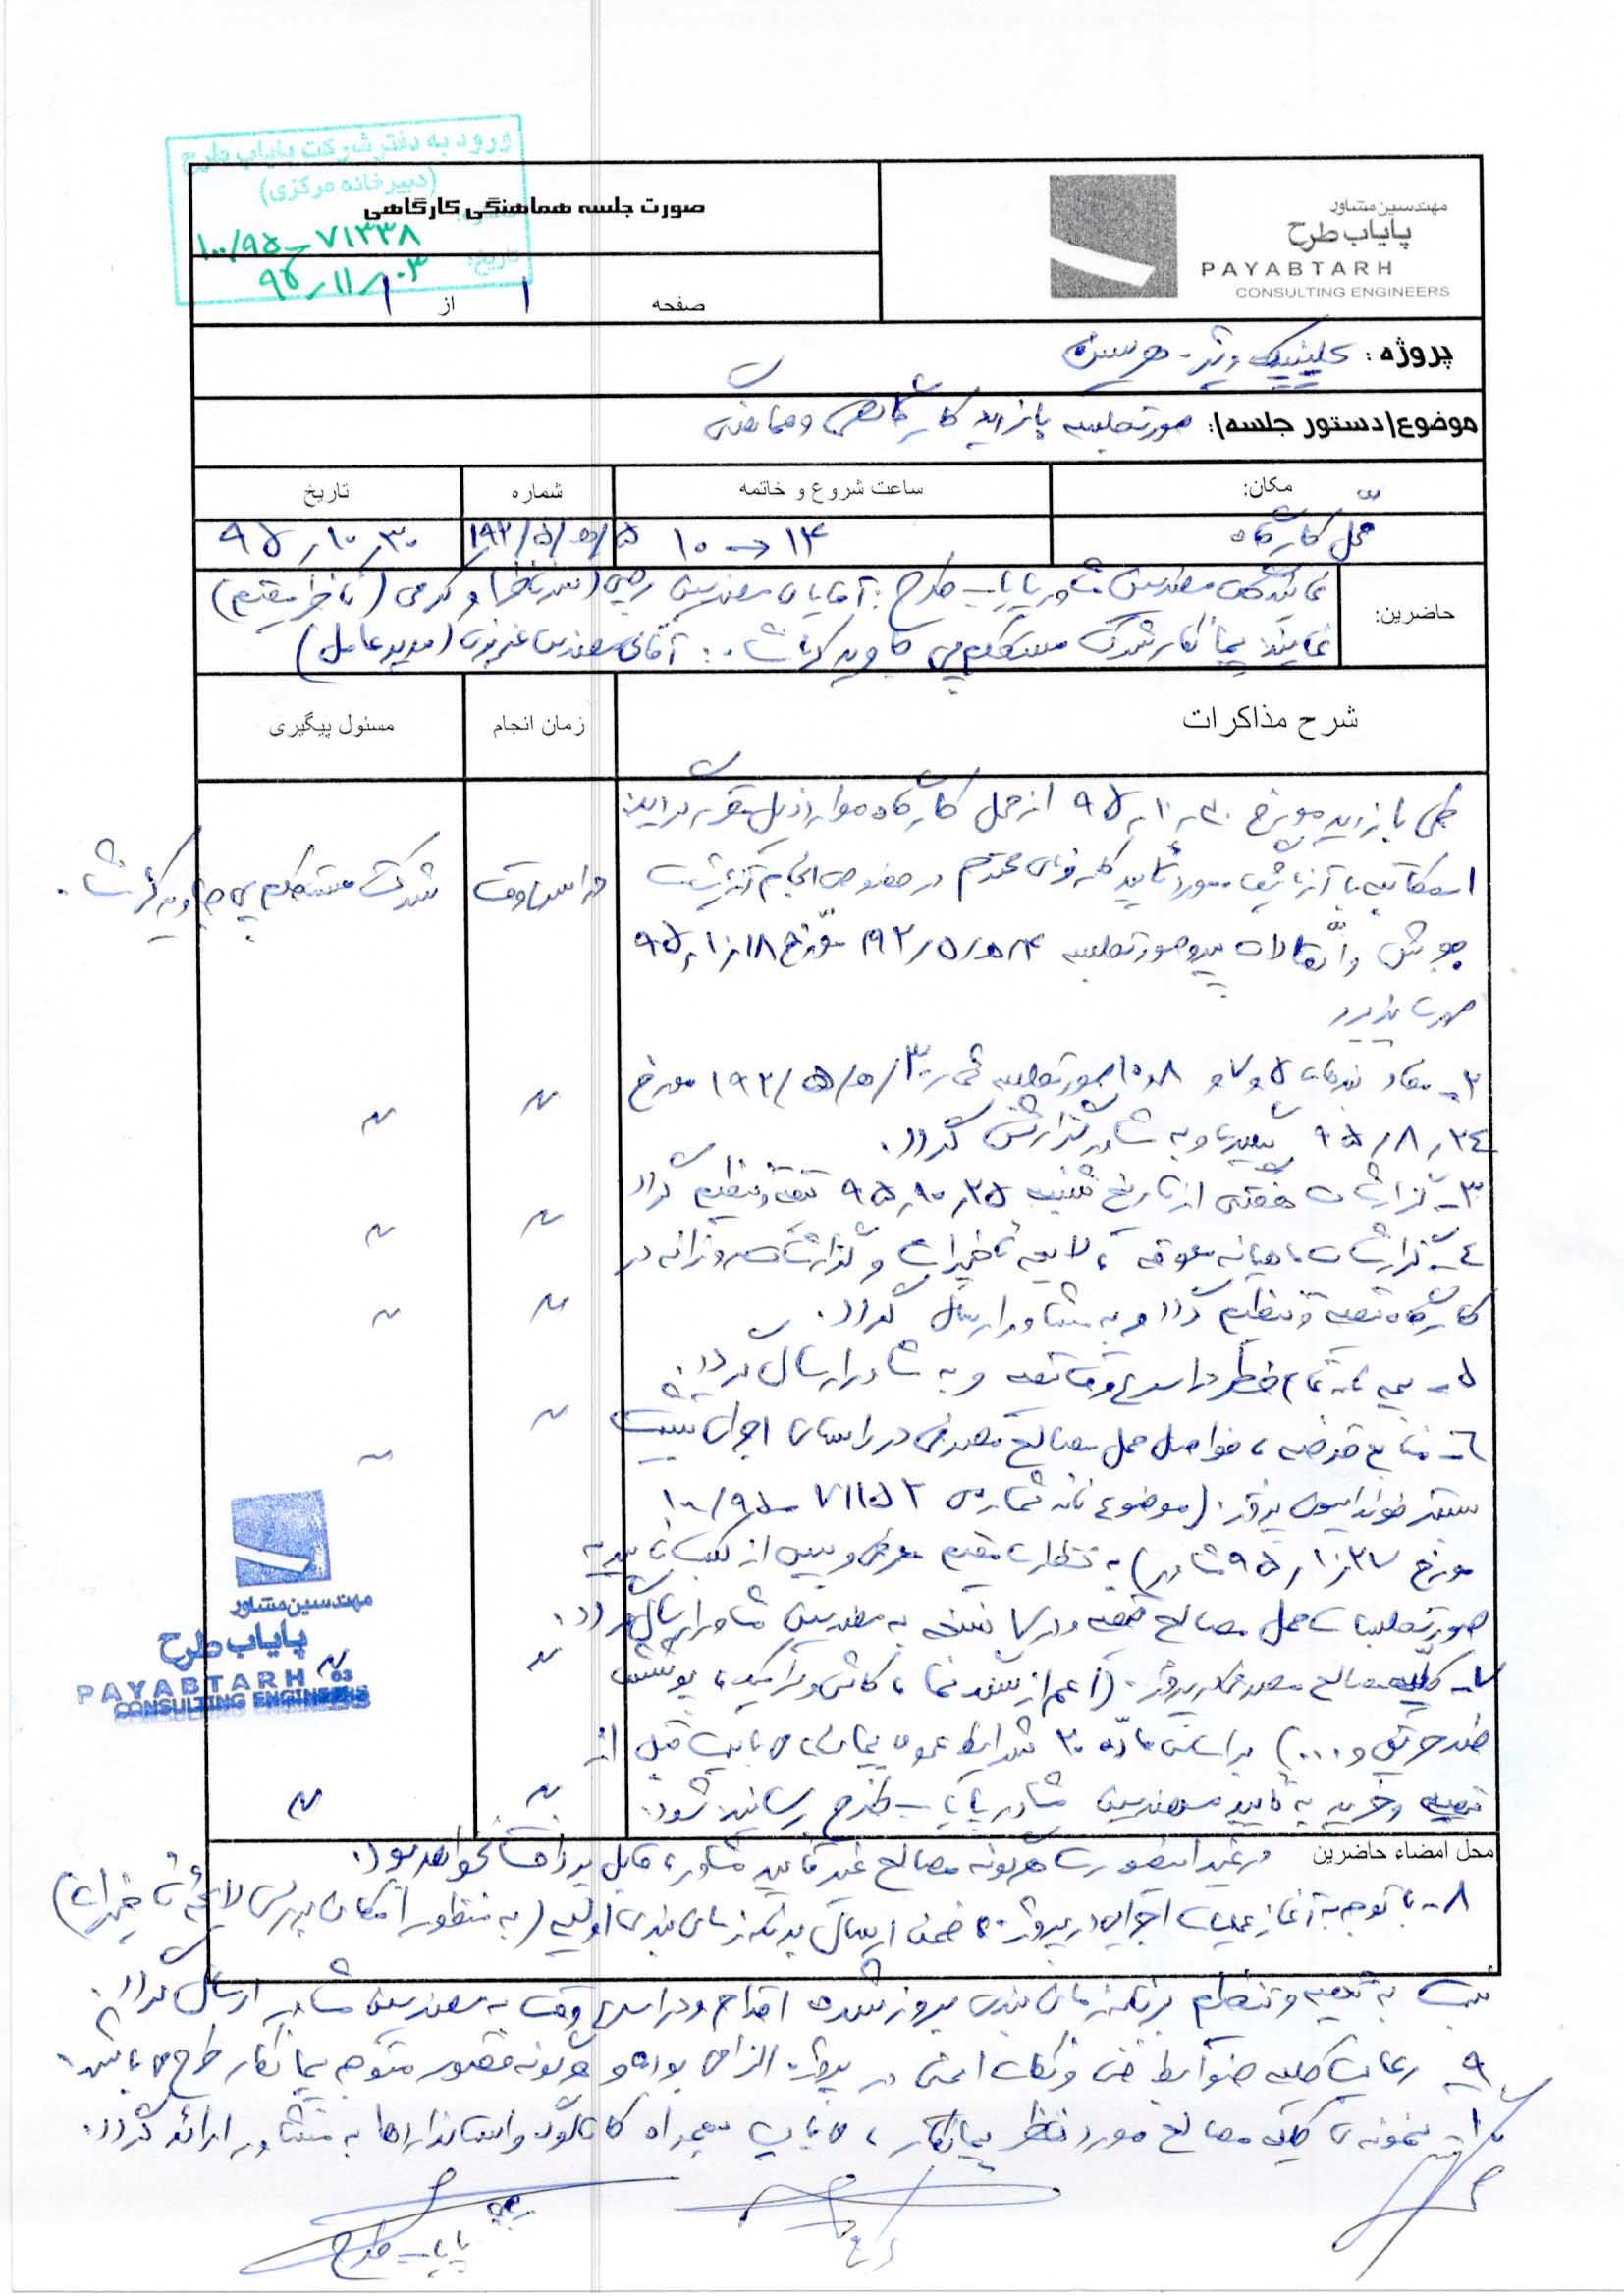 ورود به دفتر شرکت پایاب طرح
(دبیرخانه مرکزی)
۱۰۰/۹۵-۷۱۳۳۸
تاریخ: ۹۵/۱۱/۰۳
صورت جلسه هماهنگی کارگاهی
صفحه ۱ از ۱
مهندسین مشاور
پایاب طرح
PAYABTARH
CONSULTING ENGINEERS
پروژه : کلینیک ویژه - هرسین
موضوع/دستور جلسه/: صورتجلسه بازدید کارگاهی و هماهنگی
مکان: ساعت شروع و خاتمه شماره تاریخ
محل کارگاه ۱۰ → ۱۴ ۹۵/۱۰/۳۰
حاضرین:
نمایندگان مهندسین مشاور پایاب طرح : آقایان مهندسین رجبی (سرناظر) و کرمی (ناظر مقیم)
نماینده پیمانکار شرکت مستحکم پی جاوید کرمانشاه : آقای مهندس عزیزی (مدیرعامل)
شرح مذاکرات زمان انجام مسئول پیگیری
طی بازدید مورخ ۹۵/۱۰/۳۰ از محل کارگاه موارد ذیل مقرر گردید:
۱- مکاتبه با آزمایشگاه مورد تایید کارفرمای محترم در خصوص انجام آزمایشات در اسرع وقت شرکت مستحکم پی جاوید کرمانشاه
جوش و اتصالات پیرو صورتجلسه ۱۹۲/۵/۵/۴ مورخ ۹۵/۱۰/۱۸
صورت پذیرد
۲- مفاد بندهای ۵ و ۷ و ۸ و ۱۰ صورتجلسه شماره ۱۹۲/۵/۵/۳ مورخ
۹۵/۸/۲۴ پیگیری و به مشاور گزارش گردد.
۳- گزارشات هفتگی از تاریخ شنبه ۹۵/۱۰/۲۵ تهیه و تنظیم گردد
۴- گزارشات ماهیانه معوقه ، لایحه تاخیرات و گزارشات روزانه در
کارگاه تهیه و تنظیم گردد و به مشاور ارسال گردد.
۵- بیمه نامه تمام خطر در اسرع وقت تهیه و به مشاور ارسال گردد.
۶- منابع قرضه ، فواصل حمل مصالح مصرفی در راستای اجرای تثبیت
بستر فونداسیون پروژه (موضوع نامه شماره ۱۰۰/۹۵-۷۱۱۵۲
مورخ ۹۵/۱۰/۲۷ مشاور) به نظارت مقیم معرفی و پس از کسب تاییدیه
صورتجلسات حمل مصالح تهیه و در نسخه به مهندسین مشاور ارسال گردد.
۷- کلیه مصالح مصرفی در پروژه (اعم از سنگ نما ، کاشی و سرامیک ، پوشش
ضد حریق و ...) بر اساس ماده ۲۰ شرایط عمومی پیمان، می بایست قبل از
تهیه و خرید به تایید مهندسین مشاور پایاب طرح رسانیده شود.
مهندسین مشاور
پایاب طرح
PAYABTARH 03
CONSULTING ENGINEERS
محل امضاء حاضرین در غیر اینصورت هرگونه مصالح غیر تایید مشاور، قابل پرداخت نخواهد بود.
۸- با توجه به آغاز عملیات اجرایی در پروژه ضمن ارسال برنامه زمان بندی اولیه (به منظور امکان بررسی لایحه تاخیرات)
نسبت به تهیه و تنظیم برنامه زمان بندی بروز شده اقدام و در اسرع وقت به مهندسین مشاور ارسال گردد.
۹- رعایت کلیه ضوابط فنی و نکات ایمنی در پروژه الزامی بوده و هرگونه قصور متوجه پیمانکار طرح می باشد.
۱۰- نمونه ی کلیه مصالح مورد نظر پیمانکار ، می بایست بهمراه کاتالوگ و استانداردها به مشاور ارائه گردد.
رجبی
پایاب طرح